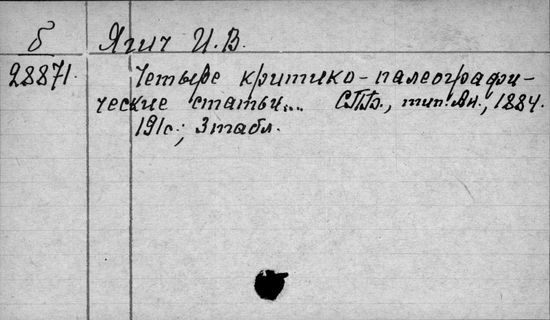 б Ягич И.В.
28871. Четыре критико-палеографи-
ческие статьи... СПБ., тип. Ак., 1884.
191с.; 3 табл.